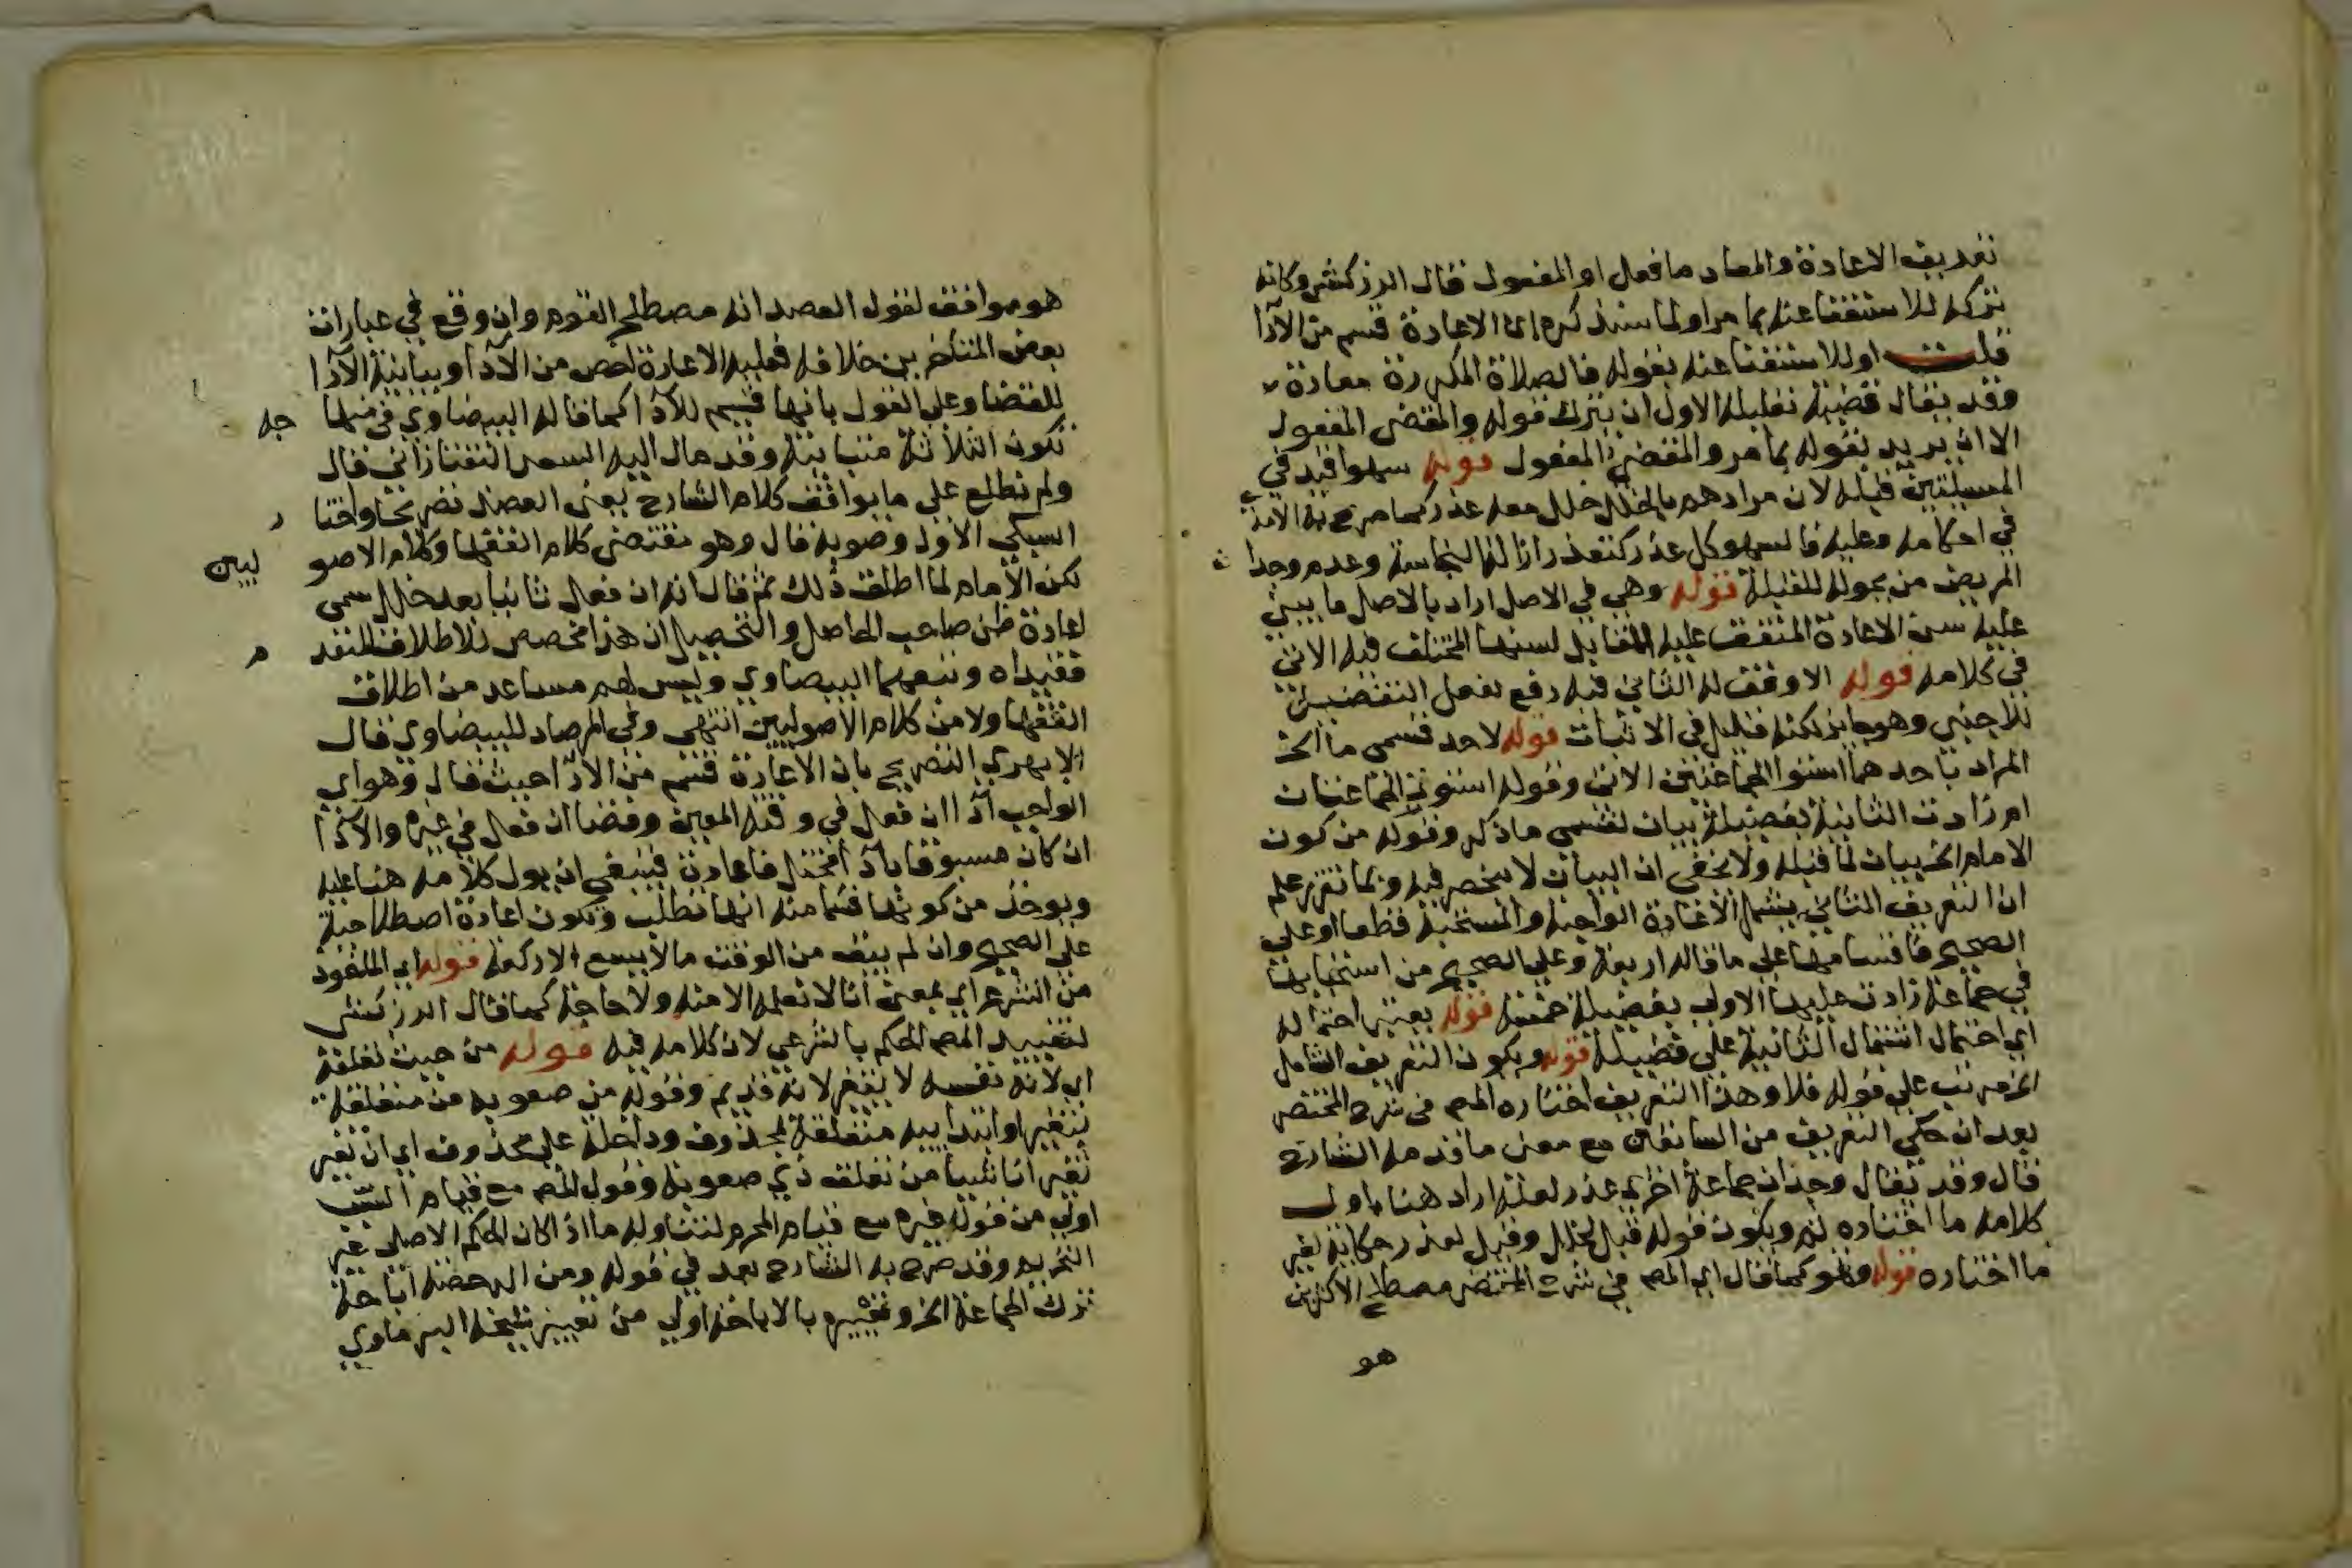 تعريف الاعادة والمعاد ما فعل او المفعول قال الزركشي وكانه
تركه للاستغنا عنه بما مر او لما سنذكره ان الاعادة قسم من الآدا
قلت او للاستغنا عنه بقوله فالصلاة المكررة معادة
وقد يقال قضية تعليله الاول ان يترك قوله والمقضى المفعول
الا ان يريد بقوله بما مر والمقضى المفعول قوله سهوا قيد في
المسيلتين قبله لان مرادهم بالخلل خلل معه عذر كما صرح به الامدي
في احكامه وعليه فالسهو كل عذر كتعذر ازالة النجاسة وعدم وجدا ن
المريض من يحوله للقبلة قوله وهي في الاصل اراد بالاصل ما يبنى
عليه سن الاعادة المتفق عليه المقابل لسنها المختلف فيه الاتي
في كلامه قوله الاوفق له الثاني فيه رفع افعل التفضيل
للاجنبي وهو جايز لكنه قليل في الاثبات قوله لاحد قسمى ما الخ
المراد باحدهما استوا الجماعتين الاتى وقوله استوت الجماعتان
ام زادت الثانية بفضيلة بيان لقسمى ما ذكر وقوله من كون
الامام الخ بيان لما قبله ولا يخفى ان البيان لا ينحصر فيه وبما تقرر علم
ان التعريف الثاني يشمل الاعادة الواجبة والمستحبة قطعا او على
الصحيح فاقسامها على ما قاله اربعة وعلى الصحيح من استحبابها
في جماعة زادت عليها الاولى بفضيلة خمسة قوله يعتبر احتماله
اي احتمال اشتمال الثانية على فضيلة قوله ويكون التعريف الشامل
الخ مرتب على قوله فلا وهذا التعريف اختاره المص في شرح المختصر
بعد ان حكى التعريف من السابقين مع معنى ما قدمه الشارح
قال وقد يقال وجدان جماعة اخرى عذر لعله اراد هنا باول
كلامه ما اختاره ثم ويكون قوله قبل لخلل وقيل لعذر حكاية لغير
ما اختاره قوله وهو كما قال اي المص في شرح المختصر مصطلح الاكثرين
هو
هو موافق لقول العضد انه مصطلح القوم وان وقع في عبارات
بعض المتاخرين خلافه فعليه الاعادة اخص من الآدا ومباينة الآدا
للقضا وعلى القول بانها قسيم للآدا كما قاله البيضاوي في منها جه
تكون الثلاثة متباينة وقد مال اليه السعد التفتازاني قال
ولم نطلع على ما يوافق كلام الشارح يعنى العضد نصريحا واختا ر
السبكي الاول وصوبه قال وهو مقتضى كلام الفقها وكلام الاصو ليين
لكن الامام لما اطلق ذلك ثم قال انه ان فعل ثانيا بعد خلل سمى
اعادة ظن صاحب الحاصل والتحصيل ان هذا مخصص للاطلاق المتقد م
فقيداه وتبعهما البيضاوي وليس لهم مساعد من اطلاق
الفقها ولا من كلام الاصوليين انتهى وفي المرصاد للبيضاوي قال
الابهري التصريح بان الاعادة قسم من الادا حيث قال وهو اي
الواجب آدا ان فعل في وقته المعين وقضا ان فعل في غيره والآدا
ان كان مسبوقا بآدا مختل فاعادة فينبغي ان يول كلامه هنا عليه
ويوخذ من كونها قسما منه انها تطلب وتكون اعادة اصطلاحية
على الصحيح وان لم يبق من الوقت ما لا يسع الا ركعة قوله اي الماخوذ
من الشرع اي بمعنى انا لا نعلمه الا منه ولا حاجة كما قال الزركشى
لتقييد المص الحكم بالشرعي لان كلامه فيه قوله من حيث تعلقه
اي لانه نفسه لا يتغير لانه قديم وقوله من صعوبة من متعلقة
بتغير او ابتدايية متعلقة بمحذوف وداخلة على محذوف اي ان تغير
تغيرا ناشيا من تعلق ذي صعوبة وقول المص مع قيام السبب
اولى من قوله غيره مع قيام المحرم لتناوله ما اذا كان الحكم الاصلي غير
التحريم وقد صرح به الشارح بعد في قوله ومن الرخصة اباحة
ترك الجماعة الخ وتعبيره بالاباحة اولى من تعبير شيخه البرماوي